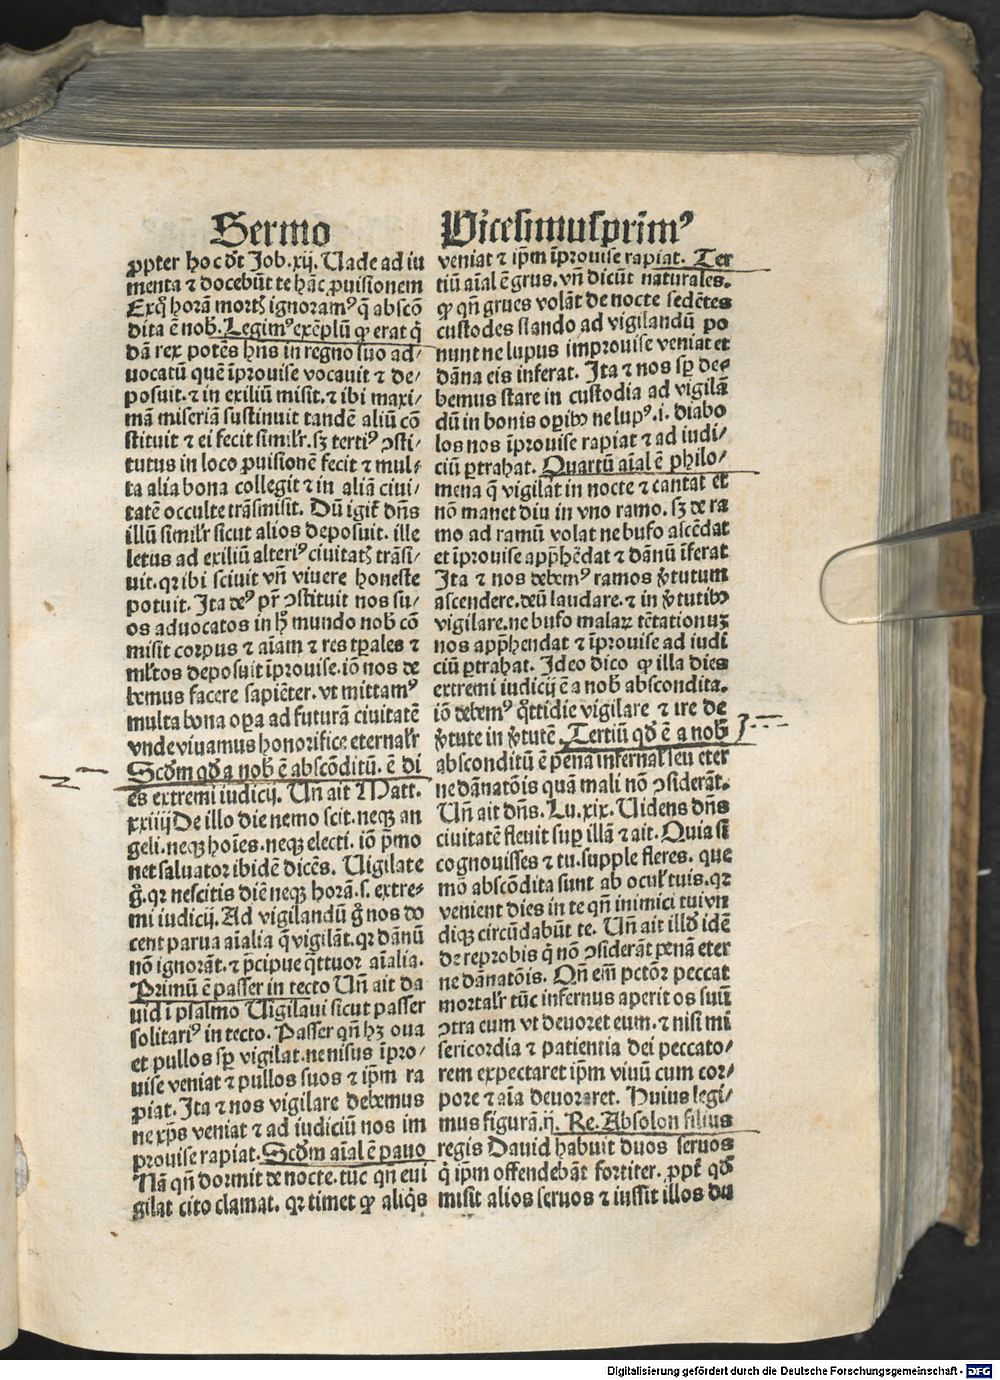 Sermo
ꝓpter hoc dr̄t Job.xij. Uade ad iu
menta ⁊ docebūt te hāc ꝓuisionem
Exqͦ horā mortꝭ ignoramꝰ q̄ abscō
dita ē nob̄. Legimꝰ exēplū ꝙ erat q̇
dā rex potēs hn̄s in regno suo ad/
uocatū quē īprouise vocauit ⁊ de/
posuit. ⁊ in exiliū misit. ⁊ ibi maxi/
mā miseriā sustinuit tandē aliū cō
stituit ⁊ ei fecit simil'r. sꝫ tertiꝰ ↄsti/
tutus in loco ꝓuisionē fecit ⁊ mul/
ta alia bona collegit ⁊ in aliā ciui/
tatē occulte trāsmisit. Dū igit̄ dn̄s
illū simil'r sicut alios deposuit. ille
letus ad exiliū alteriꝰ ciuitatꝭ trāsi/
uit. qꝛ ibi sciuit vn̄ viuere honeste
potuit. Ita deꝰ pr̄ ↄstituit nos su/
os aduocatos in hͦ mundo nob̄ cō
misit corpus ⁊ aīam ⁊ res tꝑales ⁊
ml'tos deposuit īprouise. iō nos de
bemus facere sapiēter. vt mittamꝰ
multa bona oꝑa ad futurā ciuitatē
vnde viuamus honorifice eternal'r
Scd̄m qd̄ a nob̄ ē abscōditū. ē di
es extremi iudicij. Un̄ ait Matt.
xxiiij De illo die nemo scit. neqꝫ an
geli. neqꝫ hoīes. neqꝫ electi. iō p̄mo
net saluator ibidē dicēs. Uigilate
g̊. qꝛ nescitis diē neqꝫ horā. s. extre/
mi iudicij. Ad vigilandū g̊ nos do
cent parua aīalia q̄ vigilāt. qꝛ dānū
nō ignorāt. ⁊ p̄cipue q̄ttuor aīalia.
Primū ē passer in tecto Un̄ ait da
uid ī psalmo Uigilaui sicut passer
solitariꝰ in tecto. Passer qn̄ hꝫ oua
et pullos sꝑ vigilat. ne nisus īpro/
uise veniat ⁊ pullos suos ⁊ ip̄m ra
piat. Ita ⁊ nos vigilare debemus
ne xp̄s veniat ⁊ ad iudiciū nos im
prouise rapiat. Scd̄m aīal ē pauo
Nā qn̄ dormit de nocte. tūc qn̄ eui
gilat cito clamat. qꝛ timet ꝙ aliq̇s
Uicesimusprimꝰ
veniat ⁊ ip̄m īprouise rapiat. Ter
tiū aīal ē grus. vn̄ dicūt naturales.
ꝙ qn̄ grues volāt de nocte sedētes
custodes stando ad vigilandū po
nunt ne lupus improuise veniat et
dāna eis inferat. Ita ⁊ nos sꝑ de/
bemus stare in custodia ad vigilā
dū in bonis oꝑibꝰ ne lupꝰ. i. diabo
los nos īprouise rapiat ⁊ ad iudi/
ciū ꝑtrahat. Quartū aīal ē philo/
mena q̄ vigilat in nocte ⁊ cantat et
nō manet diu in vno ramo. sꝫ de ra
mo ad ramū volat ne bufo ascēdat
et īprouise app̄hēdat ⁊ dānū īferat
Ita ⁊ nos debemꝰ ramos v̓tutum
ascendere. deū laudare. ⁊ in v̓tutibꝰ
vigilare. ne bufo malaꝝ tētationuꝫ
nos app̄hendat ⁊ īprouise ad iudi
ciū ꝑtrahat. Ideo dico ꝙ illa dies
extremi iudicij ē a nob̄ abscondita.
iō debemꝰ q̊ttidie vigilare ⁊ ire de
v̓tute in v̓tutē. Tertiū qd̄ ē a nob̄
absconditū ē pena infernal' seu eter
ne dānatōis quā mali nō ↄsiderāt.
Un̄ ait dn̄s. Lu. xix. Uidens dn̄s
ciuitatē fleuit suꝑ illā ⁊ ait. Quia si
cognouisses ⁊ tu. supple fleres. que
mō abscōdita sunt ab ocul' tuis. qꝛ
venient dies in te qn̄ inimici tui vn
diqꝫ circūdabūt te. Un̄ ait illd̄ idē
de reprobis q̇ nō ↄsiderāt penā eter
ne dānatōis. Qn̄ em̄ pctōr peccat
mortal'r tūc infernus aperit os suū
ↄtra eum vt deuoret eum. ⁊ nisi mi
sericordia ⁊ patientia dei peccato/
rem expectaret ip̄m viuū cum cor/
pore ⁊ aīa deuoraret. Huius legi/
mus figurā. ij. Re. Absolon filius
regis Dauid habuit duos seruos
q̇ ip̄m offendebāt fortiter. ꝓpt̄ qd̄
misit alios seruos ⁊ iussit illos du
Digitalisierung gefördert durch die Deutsche Forschungsgemeinschaft - DFG